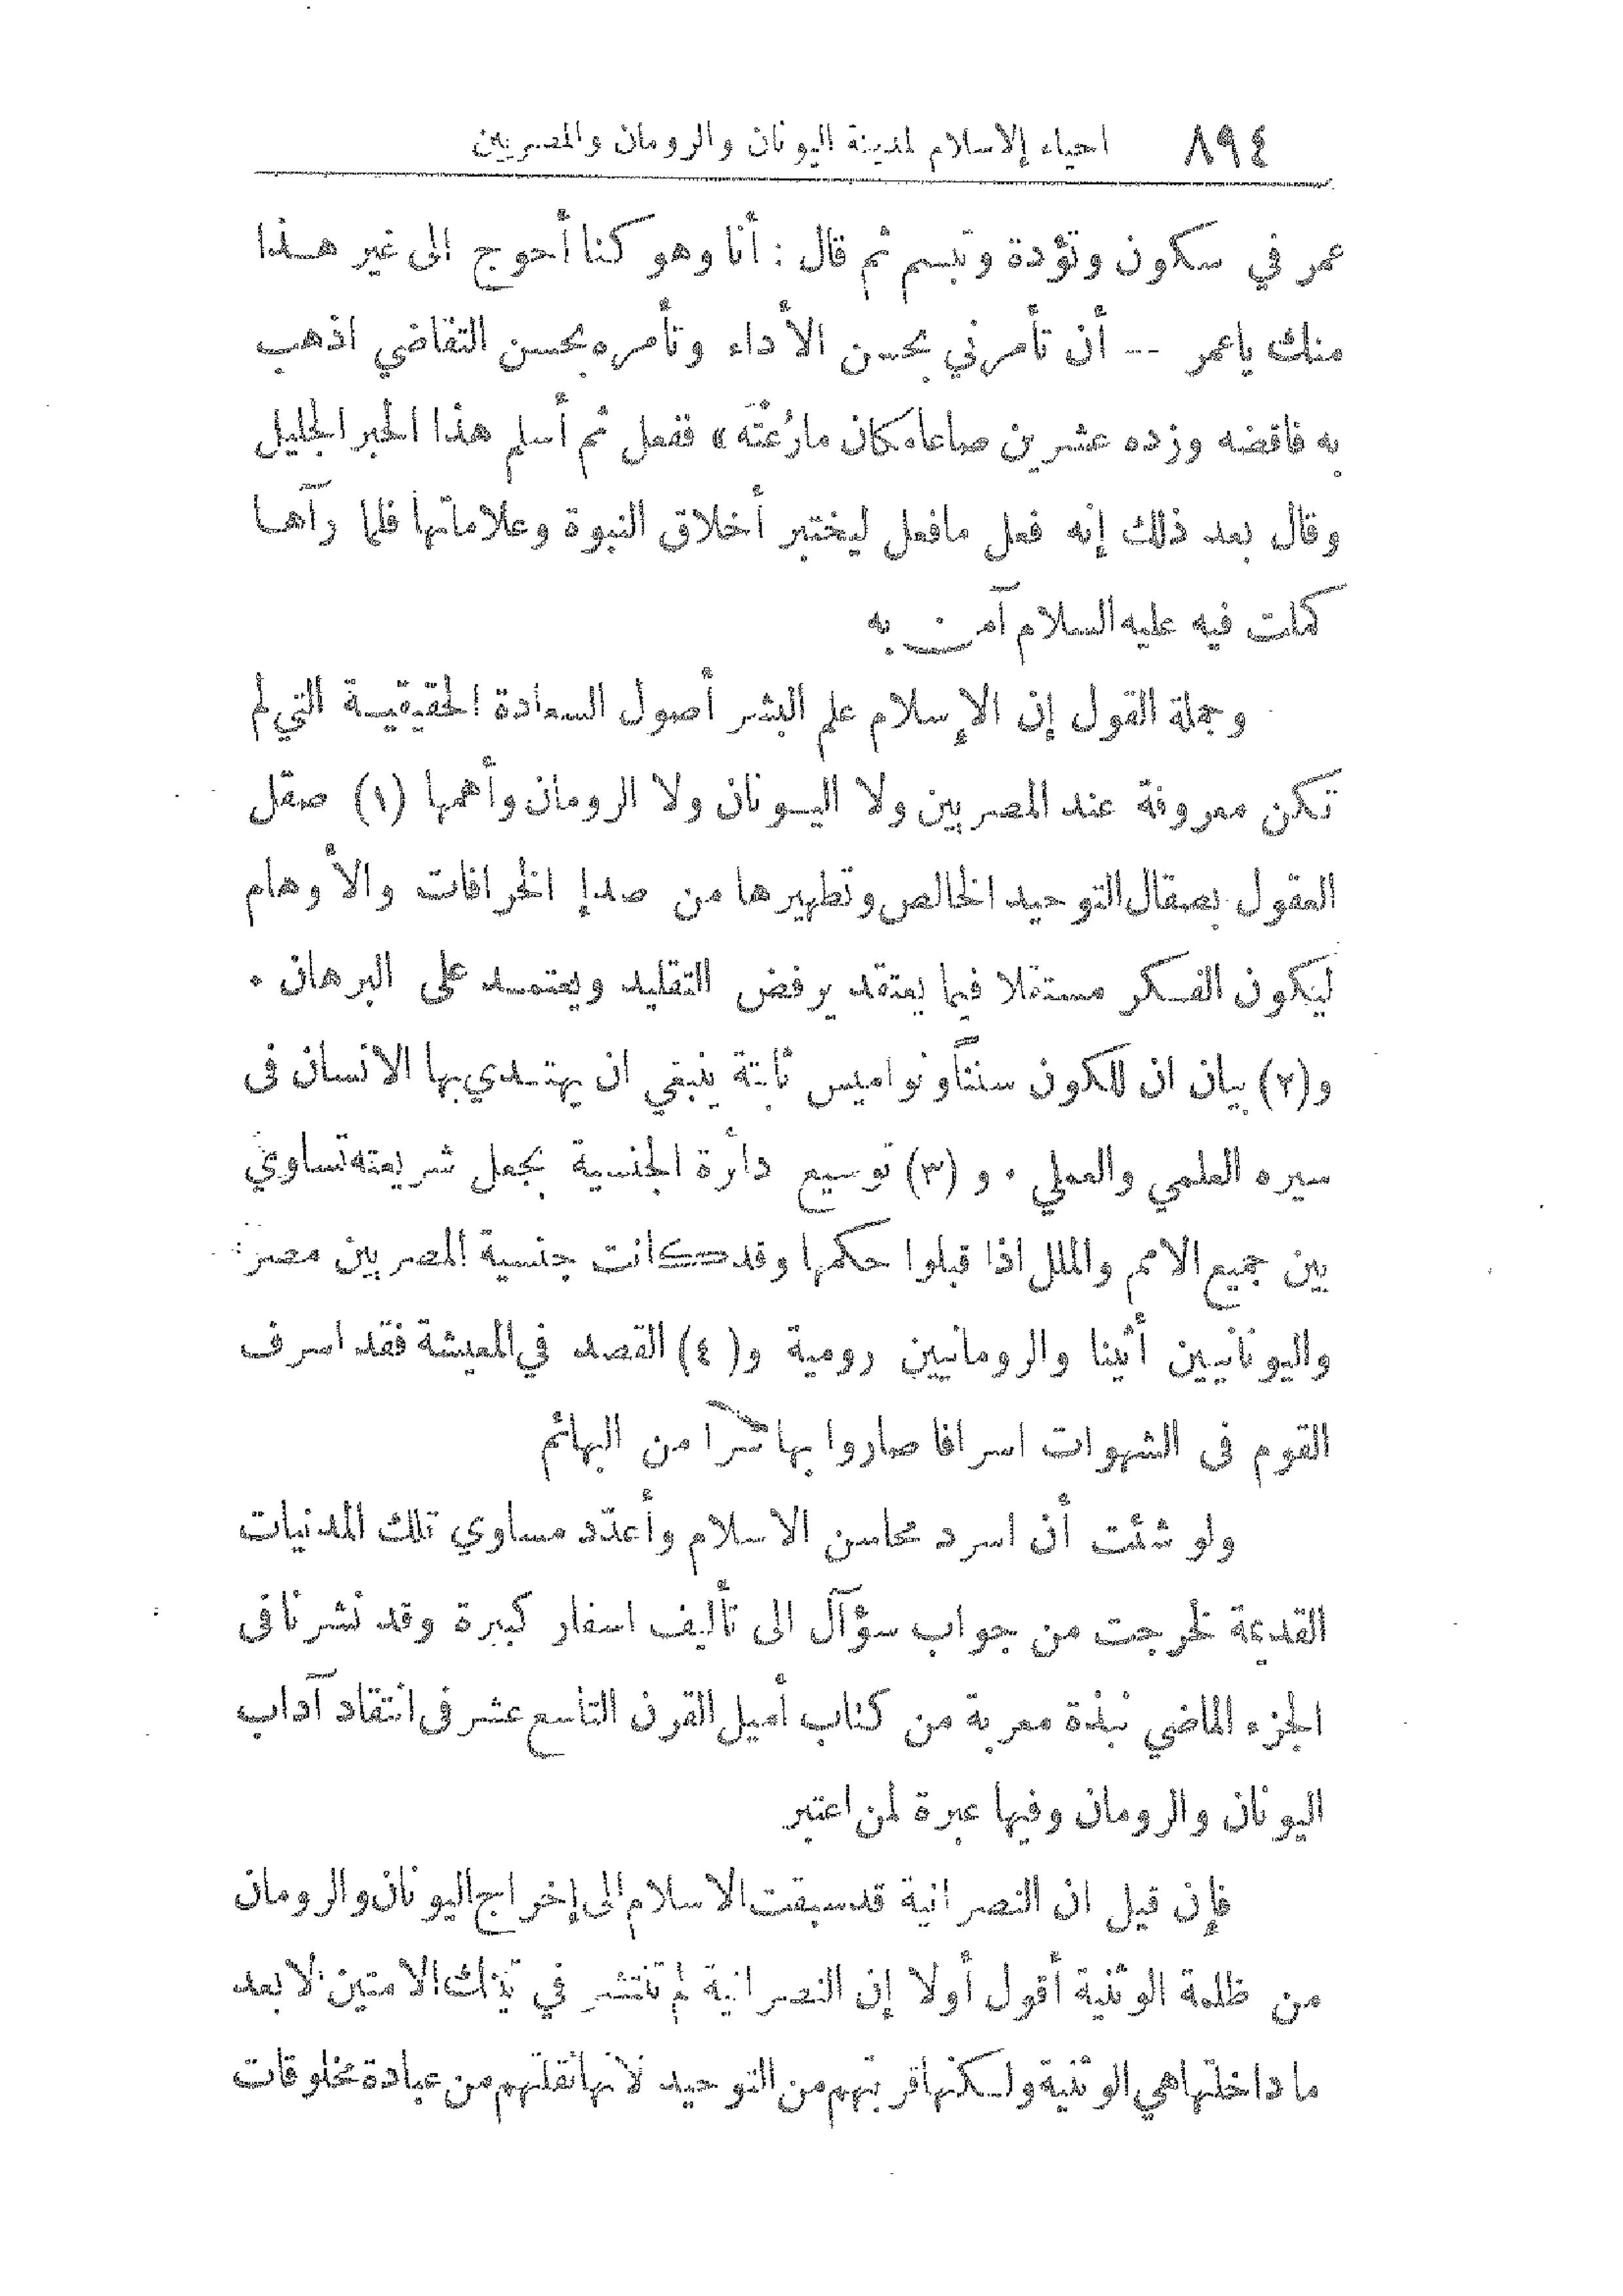 ٨٩٤ احياء الاسلام لمدينة اليونان والرومان والمصريين
عمر في سكون وتؤدة وتبسم ثم قال : أنا وهو كنا أحوج الى غير هذا
منك ياعمر -- أن تأمرني بحسن الأداء وتأمره بحسن التقاضي اذهب
به فاقضه وزده عشرين صاعا مكان مارُعْتَه » ففعل ثم أسلم هذا الحبر الجليل
وقال بعد ذلك إنه فعل مافعل ليختبر أخلاق النبوة وعلاماتها فلما رآها
كملت فيه عليه السلام آمن به
وجملة القول إن الإسلام علم البشر أصول السعادة الحقيقية التي لم
تكن معروفة عند المصريين ولا اليونان ولا الرومان وأهمها (١) صقل
العقول بصقال التوحيد الخالص وتطهيرها من صدإ الخرافات والأوهام
ليكون الفكر مستقلا فيما يعتقد يرفض التقليد ويعتمد على البرهان .
و(٢) بيان ان للكون سنناً ونواميس ثابتة ينبغي ان يهتدي بها الانسان في
سيره العلمي والعملي . و (٣) توسيع دائرة الجنسية بجعل شريعته تساوي
بين جميع الامم والملل اذا قبلوا حكمها وقد كانت جنسية المصريين مصر
واليونانيين أثينا والرومانيين رومية و(٤) القصد في المعيشة فقد اسرف
القوم في الشهوات اسرافا صاروا بها شرا من البهائم
ولو شئت أن اسرد محاسن الاسلام وأعدّد مساوي تلك المدنيات
القديمة لخرجت من جواب سؤآل الى تأليف اسفار كبيرة وقد نشرنا في
الجزء الماضي نبذة معربة من كتاب أميل القرن التاسع عشر في انتقاد آداب
اليونان والرومان وفيها عبرة لمن اعتبر
فإن قيل ان النصرانية قد سبقت الاسلام الى إخراج اليونان والرومان
من ظلمة الوثنية أقول أولا إن النصرانية لم تنتشر في تينك الامتين الا بعد
ما داخلتها هي الوثنية ولكنها قربتهم من التوحيد لانها نقلتهم من عبادة مخلوقات